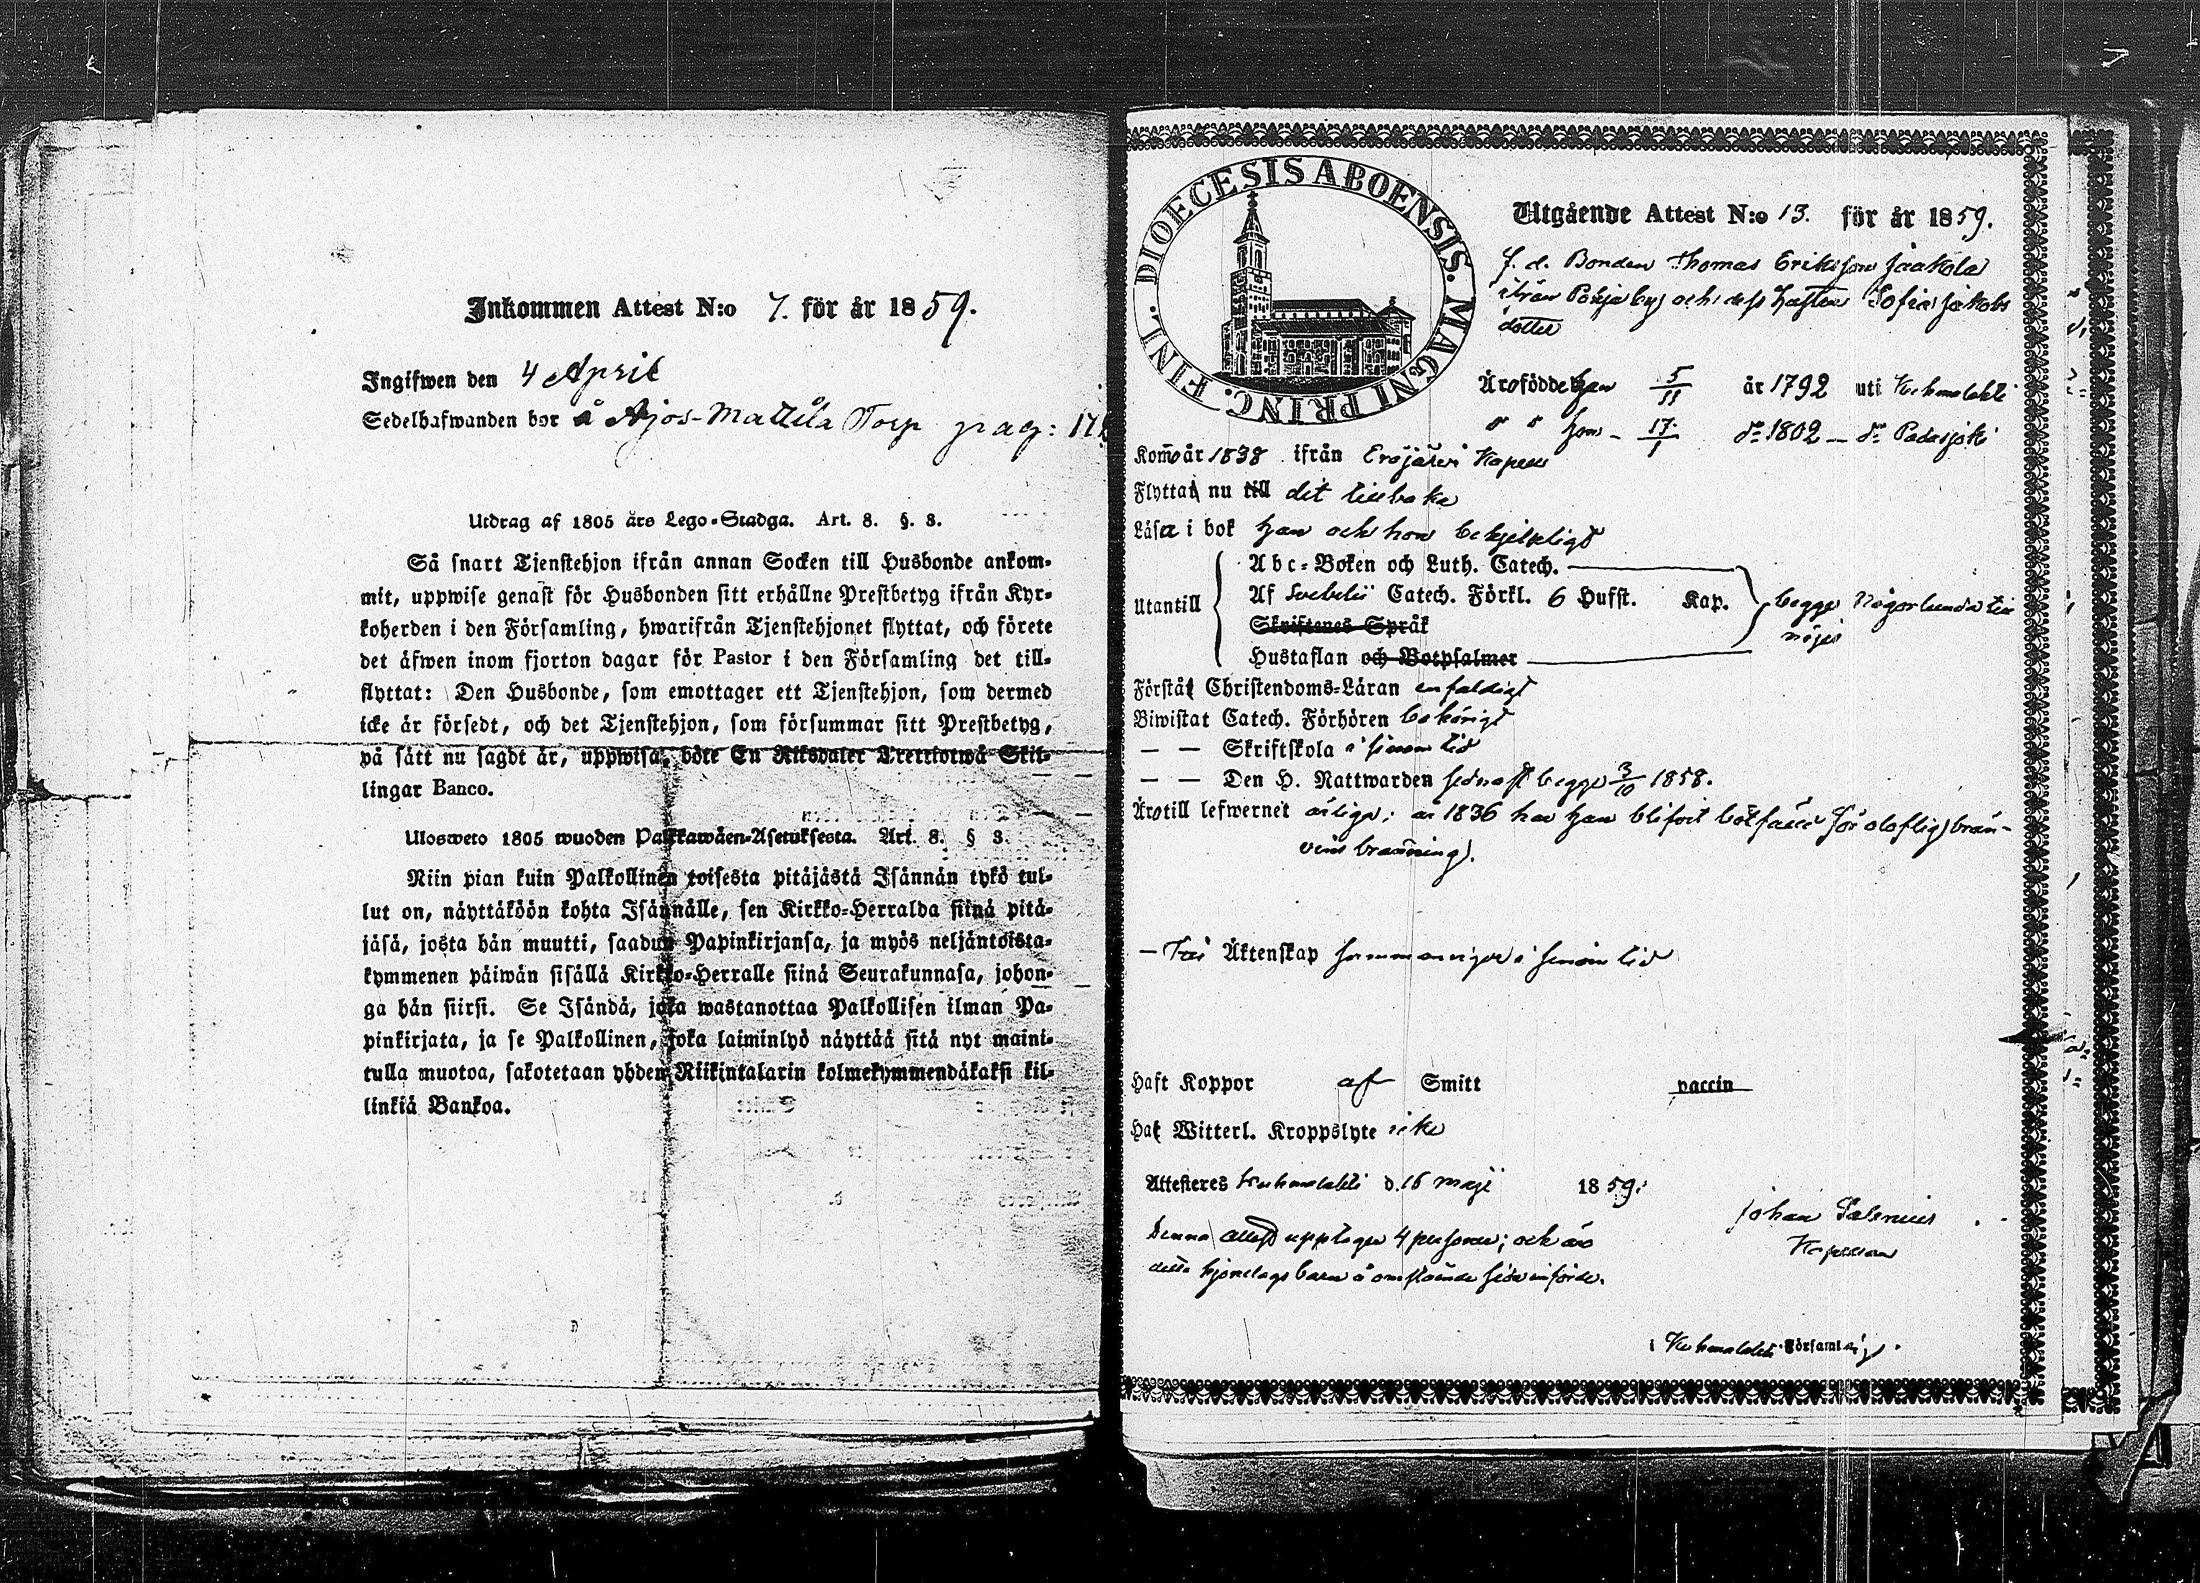 Inkommen Attest N:o 7. för år 1859.
Ingifwen den 4 April
Sedelhafwanden bor å Ajos-Mattila Torp pag: 17
Utdrag af 1805 års Lego-Stadga. Art. 8. §. 3.
Så snart Tjenstehjon ifrån annan Socken till Husbonde ankom-
mit, uppwise genast för Husbonden sitt erhållne Prestbetyg ifrån Kyr-
koherden i den Församling, hwarifrån Tjenstehjonet flyttat, och förete
det äfwen inom fjorton dagar för Pastor i den Församling det till-
flyttat: Den Husbonde, som emottager ett Tjenstehjon, som dermed
icke är försedt, och det Tjenstehjon, som försummar sitt Prestbetyg,
på sätt nu sagdt är, uppwisa, böte En Riksdaler Trettiotwå Skil-
lingar Banco.
Ulosweto 1805 wuoden Palkkawäen-Asetuksesta. Art. 8. § 3.
Niin pian kuin Palkollinen toisesta pitäjästä Isännän tykö tul-
lut on, näyttäköön kohta Isännälle, sen Kirkko-Herralda siinä pitä-
jäsä, josta hän muutti, saadun Papinkirjansa, ja myös neljäntoista-
kymmenen päiwän sisällä Kirkko-Herralle siinä Seurakunnasa, johon-
ga hän siirsi. Se Isändä, joka wastanottaa Palkollisen ilman Pa-
pinkirjata, ja se Palkollinen, joka laiminlyö näyttää sitä nyt maini-
tulla muotoa, sakotetaan yhden Riikintalarin kolmekymmendäkaksi kil-
linkiä Bankoa.
DIOECESIS ABOENSIS. MAGNI PRINC. FINL.
Utgående Attest N:o 13. för år 1859.
f. d. Bonden Thomas Eriksson Jaakola
ifrån Pohja by och dess hustru Sofia Jakobs
dotter
Äro födde han 5/11 år 1792 uti Kuhmalahti
" " hon - 17/1 d:o 1802 - d:o Padasjoki
Kommo år 1838 ifrån Eräjärvi Kapell
Flytta nu till dit tillbaka
Läsa i bok han och hon behjelpligt
Utantill
Abc-Boken och Luth. Catech.
Af Svebelii Catech. Förkl. 6 Hufst. Kap.
Skriftenes Språk
Hustaflan och Botpsalmer
begge någorlunda till
nöjes
Förstå Christendoms-Läran enfaldigt
Biwistat Catech. Förhören behörigt
— — Skriftskola i sinom tid
— — Den H. Nattwarden sednast begge 3/10 1858.
Äro till lefwernet ärliga; år 1836 har han blifvit bötfälld för oloflig brän-
vins bränning.
— Till Äktenskap sammanvigde i sinom tid
Haft Koppor af Smitt vaccin
Haf Witterl. Kroppslyte icke
Attesteres Kuhmalahti d. 16 Maji 1859.
Johan Salenius
Kapellan
Denna attest upptager 4 personer; och äro
detta hjonelags barn å omstående sida införde.
i Kuhmalahti Församling.